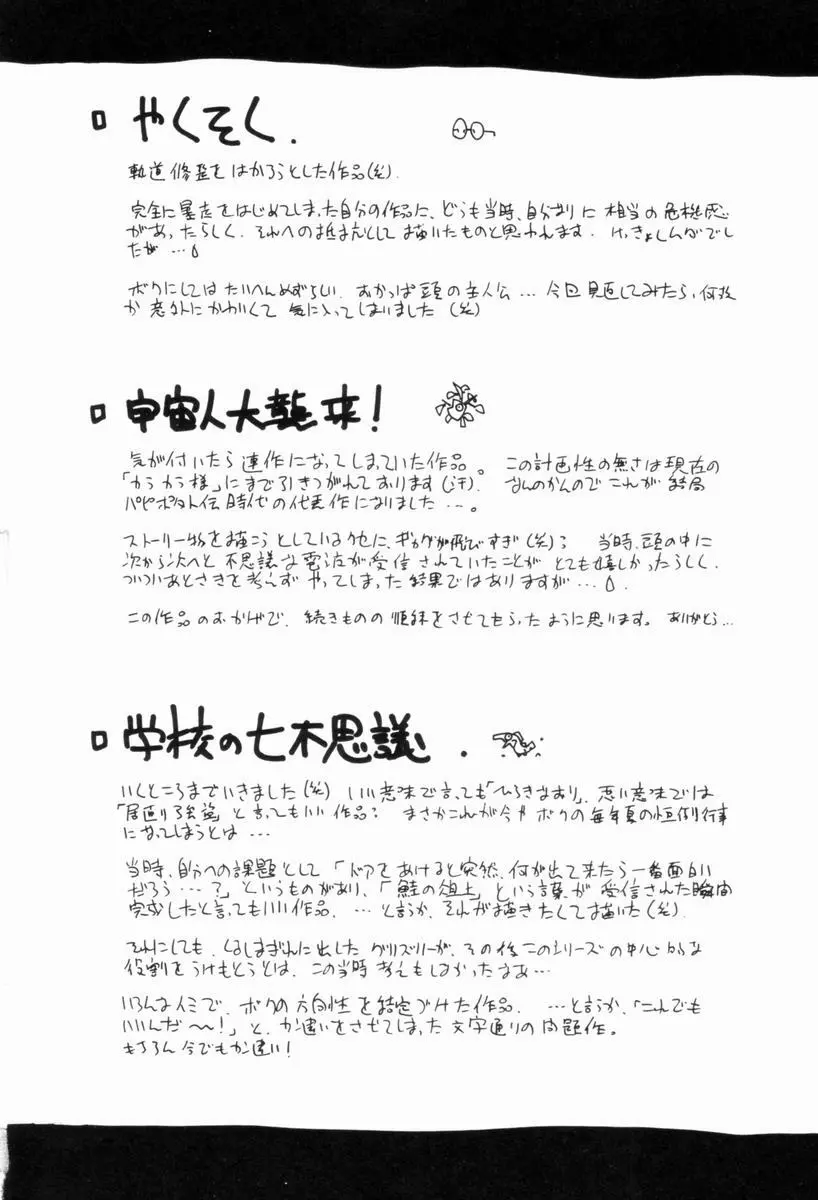 やくそく.
軌道修整をはかろうとした作品(笑).
完全に暴走をはじめてしまった自分の作品に、どうも当時、自分なりに 相当の危機感
があったらしく. それへの抵抗として 描いたものと思われます. けっきょくムダでし
たが…
ボクにしてはたいへんめずらしい. おかっぱ頭の主人公… 今回 見直してみたら、何故
か 意外にかわいくて 気に入ってしまいました (笑)
宇宙人大襲来!
気が付いたら 連作になってしまっていた作品。 この計画性の無さは現在の
「カラカラ様」にまで引きつがれております(汗). なんのかんので これが 結局
パピポ外伝時代の代表作になりました…。
ストーリー物を描こうとしているクセに、ギャグが飛びすぎ(笑); 当時、頭の中に
次から次へと 不思議な電波が受信されていたことが とても嬉しかったらしく.
ついついあとさきを考えず やってしまった 結果ではありますが…
この作品のおかげで、続きものの 修練をさせてもらったように思います。 ありがとう…
学校の七不思議.
いくところまでいきました(笑) いい意味で言っても「ひらきなおり」. 悪い意味では
「居直り強盗」と言ってもいい作品; まさかこれが今や ボクの毎年夏の恒例行事
になってしまうとは…
当時、自分への課題として 「ドアをあけると突然、何が出て来たら一番面白い
だろう…?」というものがあり、「鮭の頭上」という言葉が 受信された瞬間
完成したと言ってもいい作品. …と言うか、それが描きたくて描いた(笑).
それにしても、くるしまぎれに出した グリズリーが、その後このシリーズの中心的な
役割をうけもとうとは、この当時 考えもしなかったなあ…
いろんなイミで、ボクの方向性を決定づけた作品. …と言うか、「これでも
いいんだ〜!」と、カン違いをさせてしまった 文字通りの問題作。
もちろん 今でもカン違い!